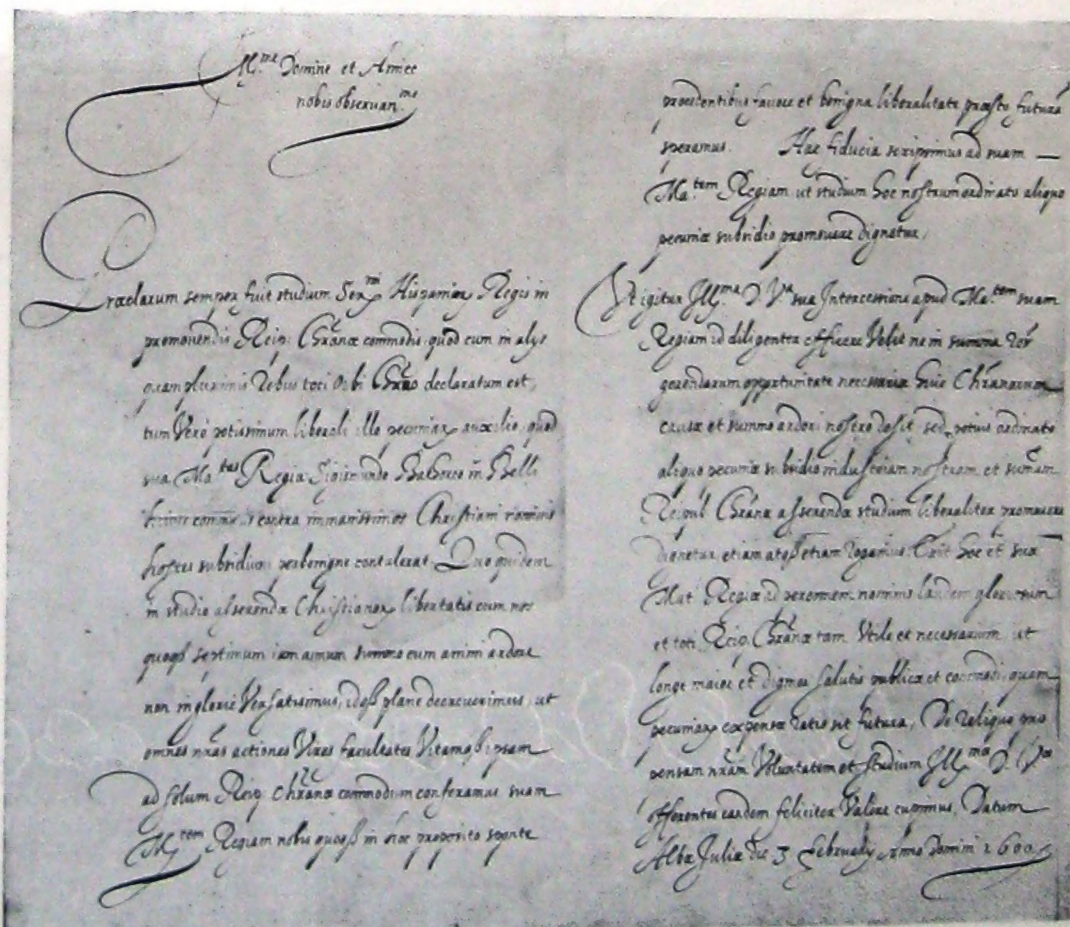 Ill.me Domine et Amice
nobis obseruan.me
Præclarum semper fuit studium Ser.mi Hispaniar Regis in
promouendis Reip: Chranæ commodis quod cum in alijs
quamplurimis rebus toti Orbi Chrāo declaratum est,
tum Vero potissimum liberali illo pecuniar auxilio, quod
sua Ma.tas Regia Sigismundo Bathoreo in Belli
contra immanissimos Christiani nominis
hostes subsidium perbenigne contulerat. Quo quidem
in studio asserendæ Christianor libertatis cum nos
quoq septimum iam annum summo cum animi ardore
non inglorie Versati simus, idq plane decreuerimus, ut
omnes nr̄as actiones Vires facultates Vitamq ipsam
ad solum Reip Chranæ commodum conferamus suam
M.tem Regiam nobis quoq in hoc proposito sponte
præsto futura
speramus. Hac fiducia scripsimus ad suam —
Ma.tem Regiam ut studium hoc nostrum ordinato aliquo
pecuniæ subsidio promouere dignetur,
Vt igitur Ill.ma D. V.ra sua Intercessione apud Ma.tem suam
Regiam id diligenter efficere Velit ne in summa rer
gerendarum opportunitate necessaria huic Chranorum
causæ et summo ardori nostro desit, sed potius ordinato
aliquo pecuniæ subsidio industriam nostram et sum̄am
Reipul Chranæ asserendæ studium liberaliter promouere
dignetur etiam atq etiam rogamus. Erit hoc et suæ
Mat Regiæ ad perennem nominis laudem gloriosum
et toti Reip. Chranæ tam Vtile et necessarium ut
longe maior et dignior salutis publicæ et commodi, quam
pecuniar expensæ ratio sit futura, De reliquo pro
pensam nr̄am Voluntatem et studium Ill.mæ D. V.ræ
offerentes eandem feliciter Valere cupimus, Datum
Albæ Juliæ die 3 February Anno Domini 1600